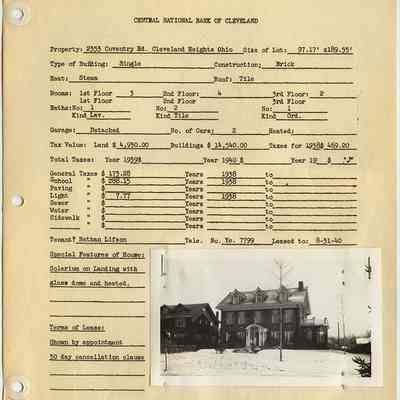 CENTRAL NATIONAL BANK OF CLEVELAND
Property: 2353 Coventry Rd. Cleveland Heights Ohio Size of Lot: 97.17' x189.55'
Type of Building: Single Construction: Brick
Heat: Steam Roof: Tile
Rooms: 1st Floor 3 2nd Floor: 4 3rd Floor: 2
1st Floor 2nd Floor 3rd Floor
Baths:No: 1 No: 2 No: 1
Kind Lav. Kind Tile Kind Ord.
Garage: Detached No. of Cars: 2 Heated:
Tax Value: Land $ 4,930.00 Buildings $ 14,540.00 Taxes for 1938$ 469.20
Total Taxes: Year 1939$ Year 1940 $ Year 19 $
General Taxes $ 173.28 Years 1938 to
School " $ 288.15 Years 1938 to
Paving " $ Years to
Light " $ 7.77 Years 1938 to
Sewer " $ Years to
Water " $ Years to
Sidewalk " $ Years to
$ Years to
Tenant? Nathan Lifson Tele. No. Ye. 7799 Leased to: 8-31-40
Special Features of House:
Solarium on Landing with
glass dome and heated.
Terms of Lease:
Shown by appointment
30 day cancellation clause